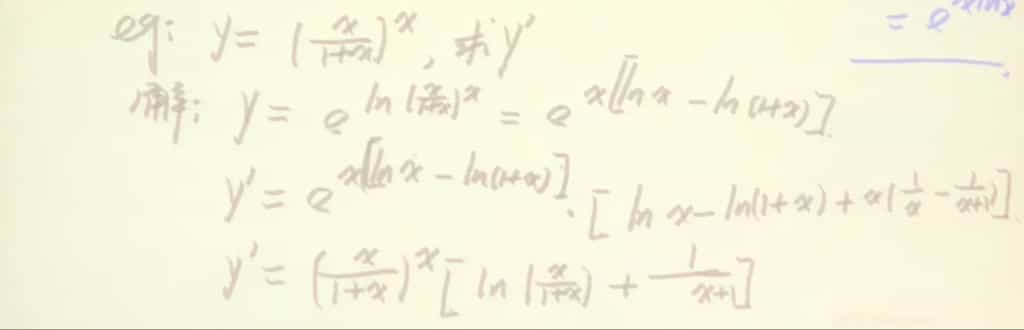 eg: y = (x/(1+x))^x, 求y'
= e^{xlnx}
解: y = e^{ln(x/(1+x))^x} = e^{x[ln x - ln(1+x)]}
y' = e^{x[ln x - ln(1+x)]} · [ln x - ln(1+x) + x(1/x - 1/(x+1))]
y' = (x/(1+x))^x [ln(x/(1+x)) + 1/(x+1)]